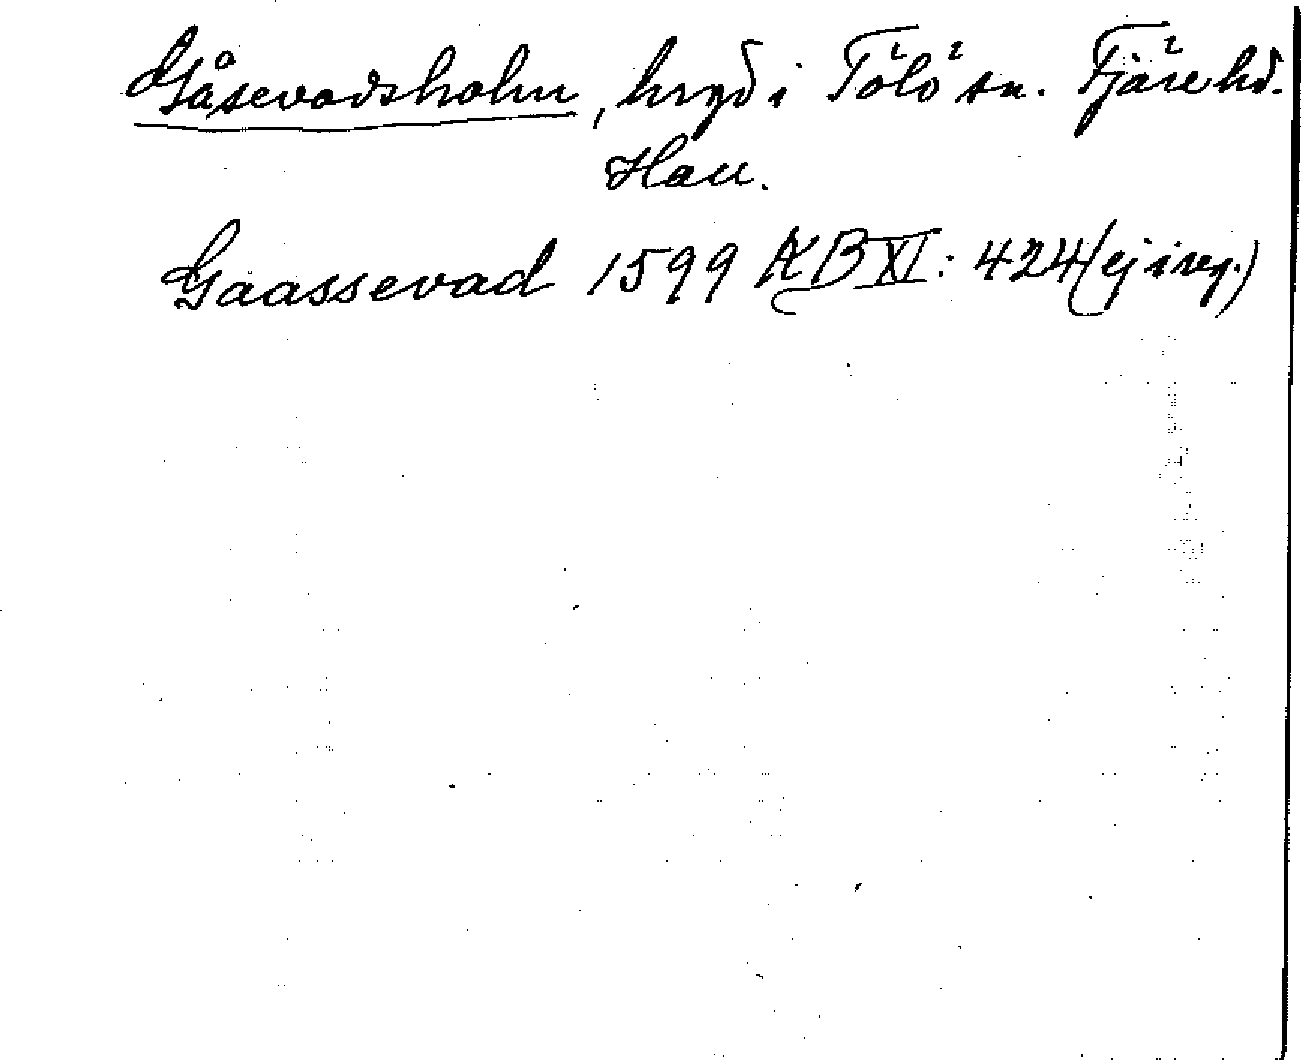 Gåsevadsholm, hrgd i Tölö sn. Fjäre hd.
Hall.
Gaassevad 1599 KB XI: 424 (ej i reg.)